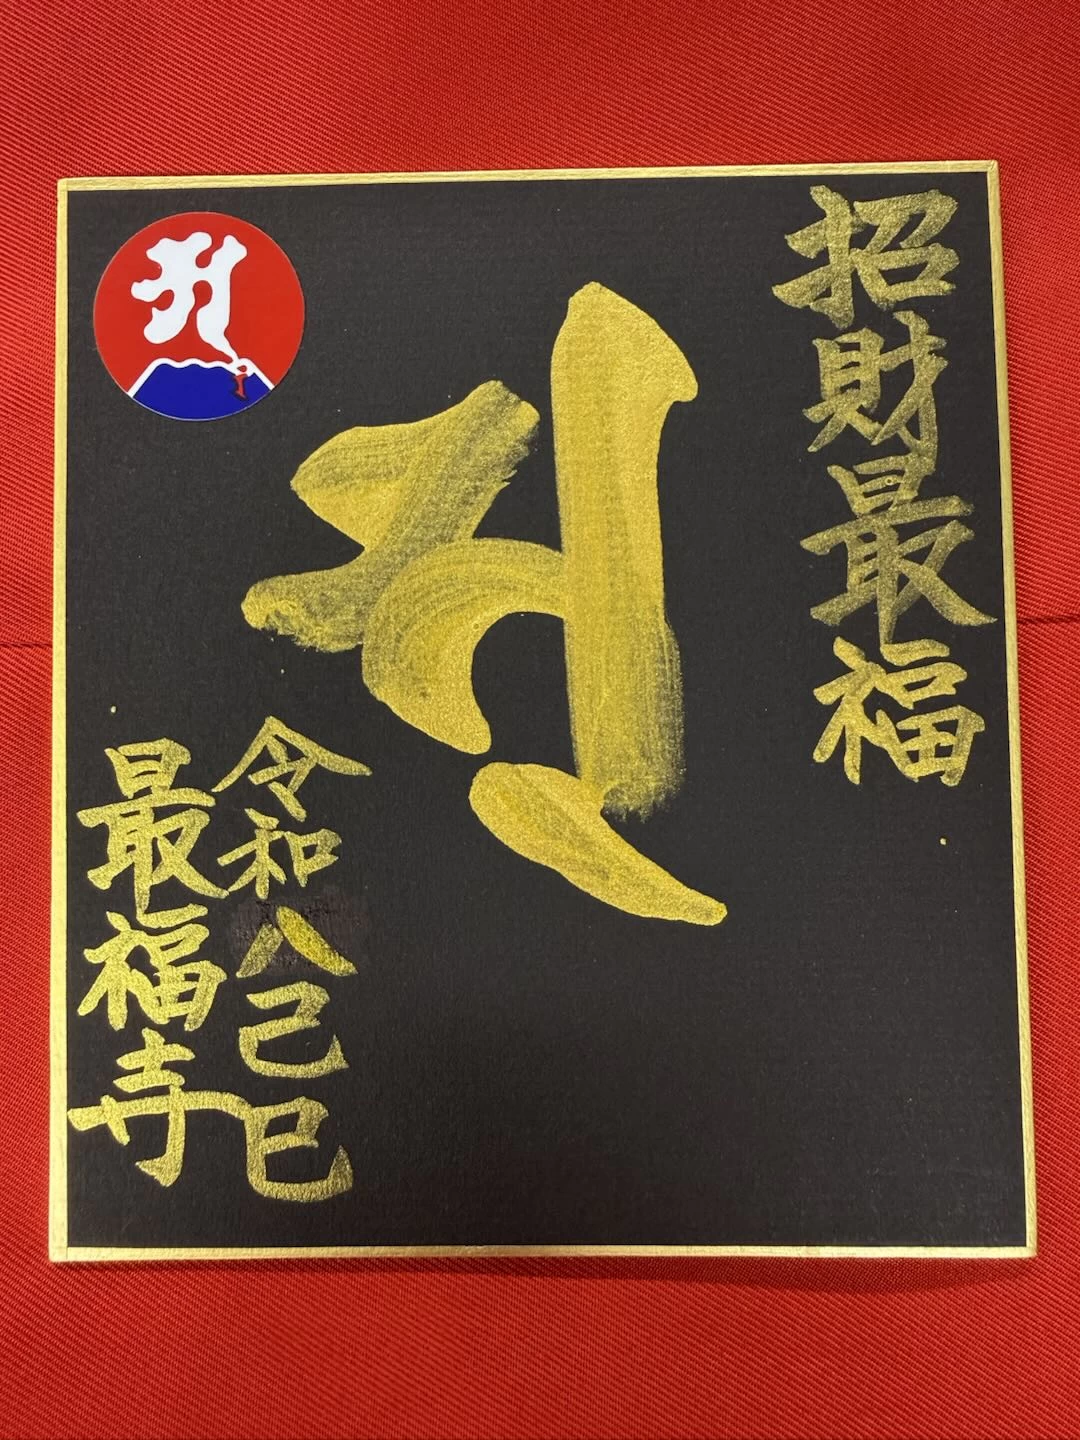 招財最福
令和八己巳
最福寺